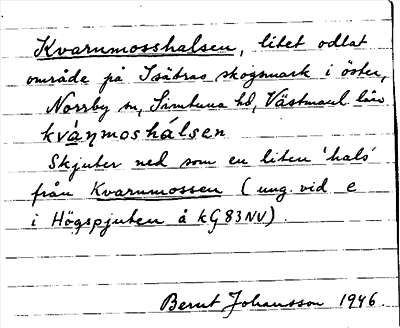 Kvarnmosshalsen, litet odlat
område på Isätras skogsmark i öster,
Norrby sn, Simtuna hd, Västmanl. län
kvàṇmoshálsen
Skjuter ned som en liten 'hals'
från Kvarnmossen (ung. vid e
i Högspjuten å kG 83 NV).
Bernt Johansson 1946.